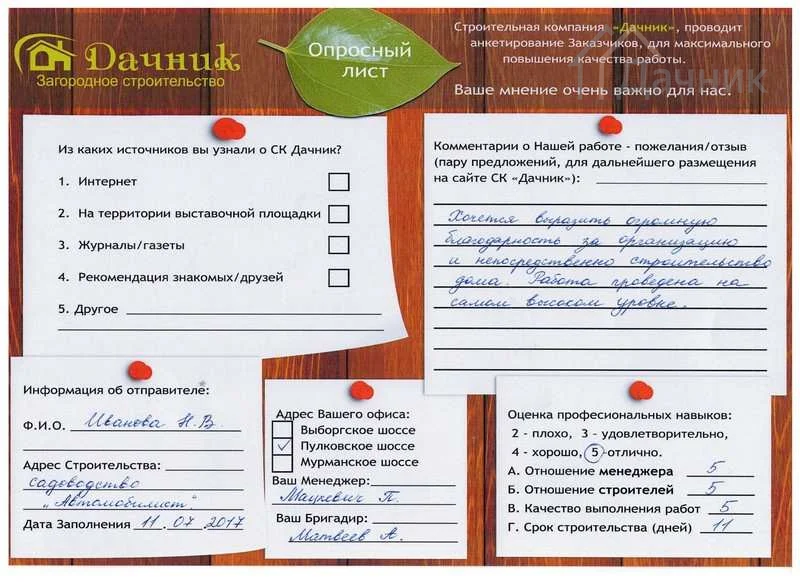 Дачник
Загородное строительство
Опросный
лист
Строительная компания «Дачник», проводит
анкетирование Заказчиков, для максимального
повышения качества работы.
Ваше мнение очень важно для нас.
Дачник
Из каких источников вы узнали о СК Дачник?
1. Интернет
2. На территории выставочной площадки
3. Журналы/газеты
4. Рекомендация знакомых/друзей
5. Другое
Комментарии о Нашей работе - пожелания/отзыв
(пару предложений, для дальнейшего размещения
на сайте СК «Дачник»):
Хочется выразить огромную
благодарность за организацию
и непосредственно строительство
дома. Работа проведена на
самом высоком уровне.
Информация об отправителе:
Ф.И.О. Иванова Н.В.
Адрес Строительства:
садоводство
„Автомобилист"
Дата Заполнения 11.07.2017
Адрес Вашего офиса:
Выборгское шоссе
✓ Пулковское шоссе
Мурманское шоссе
Ваш Менеджер:
Мацкевич П.
Ваш Бригадир:
Матвеев А.
Оценка професиональных навыков:
2 - плохо, 3 - удовлетворительно,
4 - хорошо, 5-отлично.
А. Отношение менеджера 5
Б. Отношение строителей 5
В. Качество выполнения работ 5
Г. Срок строительства (дней) 11